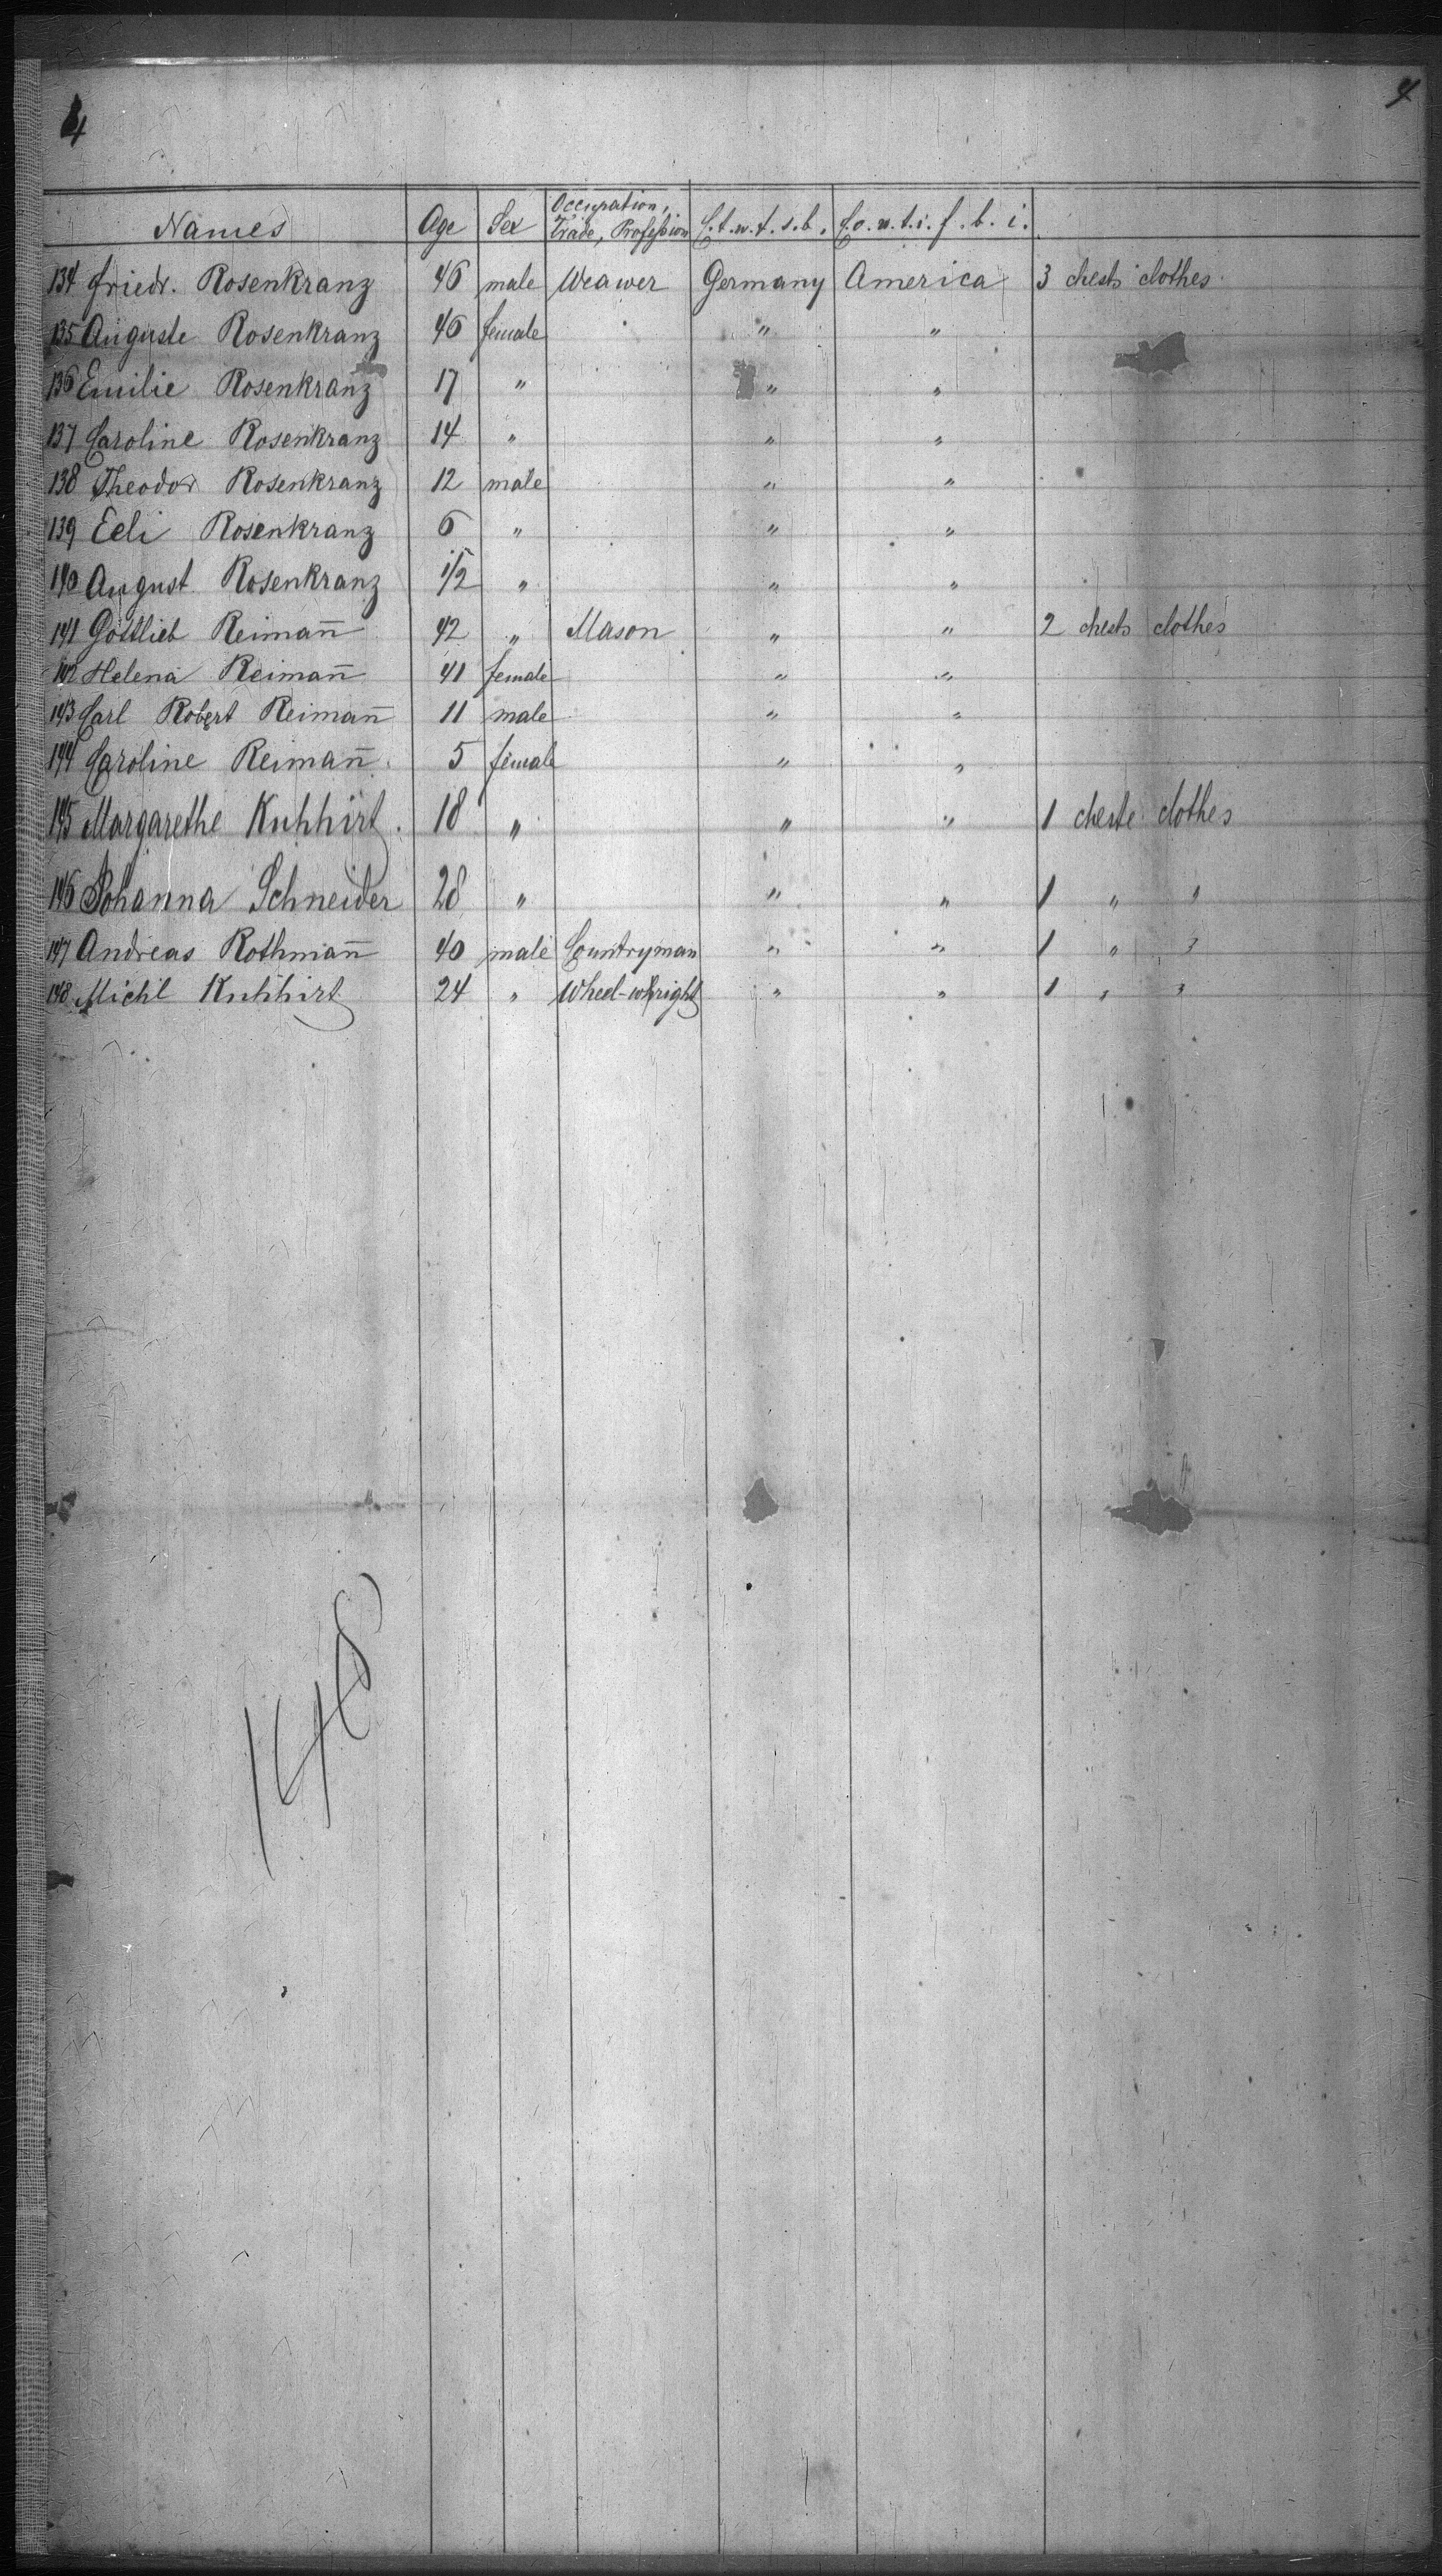 4 4
Names Age Sex Occupation, Trade, Profession C.t.w.t.s.b. C.o.w.t.i.f.b.i.
134 Friedr. Rosenkranz 46 male Weawer Germany America 3 chests clothes
135 Auguste Rosenkranz 46 female " "
136 Emilie Rosenkranz 17 " " "
137 Caroline Rosenkranz 14 " " "
138 Theodor Rosenkranz 12 male " "
139 Edi Rosenkranz 6 " " "
140 August Rosenkranz 1/2 " " "
141 Gottlieb Reiman̅n̅ 42 " Mason " " 2 chests clothes
142 Helena Reiman̅n̅ 41 female " "
143 Carl Robert Reiman̅n̅ 11 male " "
144 Caroline Reiman̅n̅ 5 female " "
145 Margarethe Kuhhirt. 18 " " " 1 cheste clothes
146 Johanna Schneider 28 " " " 1 " "
147 Andreas Rothman̅n̅ 40 male Countryman " " 1 " "
148 Michl Kuhhirt 24 " Wheel-whright " " 1 " "
148